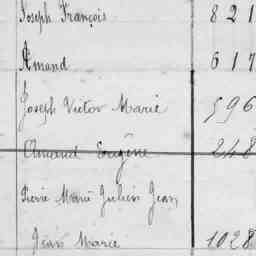 Joseph François 821
Amand 617
Joseph Victor Marie 596
Amand Eugène 248
Pierre Marie Julien Jean
Jean Marie 1028